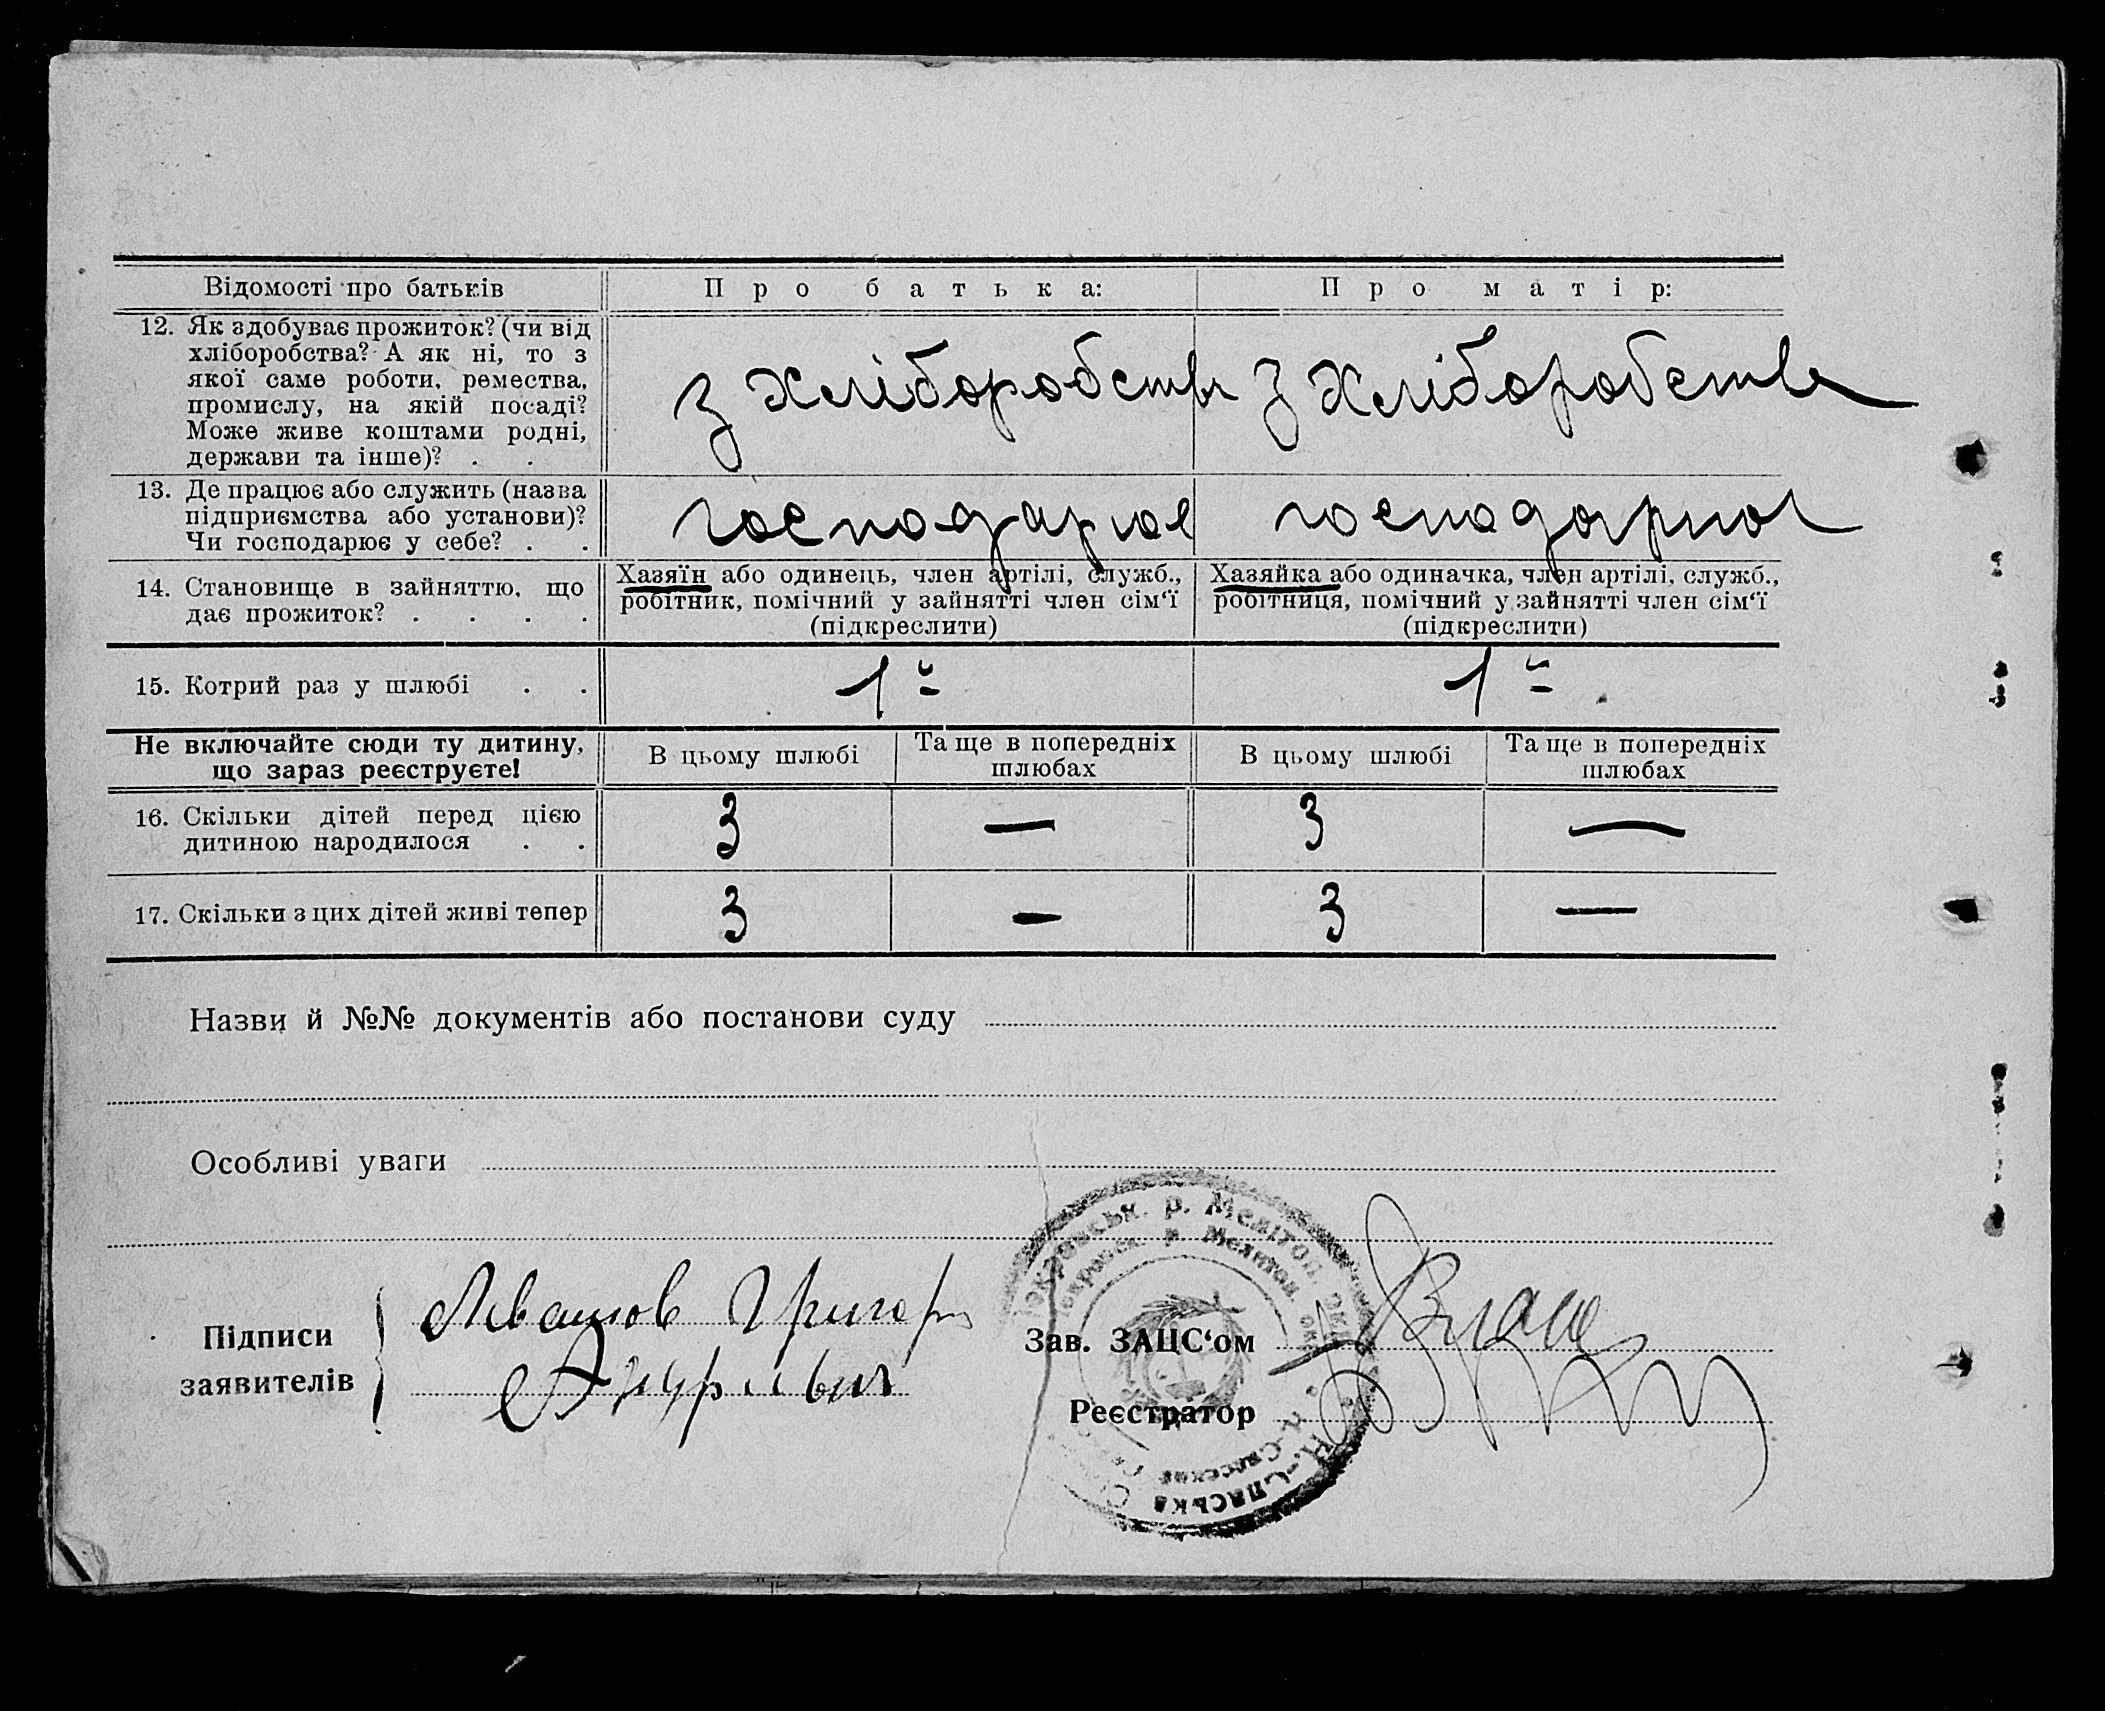 Відомості про батьків
Про батька:
Про матір:
12. Як здобуває прожиток? (чи від
хліборобства? А як ні, то з
якої саме роботи, ремества,
промислу, на якій посаді?
Може живе коштами родні,
держави та інше)? . .
з Хліборобства
з Хліборобства
13. Де працює або служить (назва
підприємства або установи)?
Чи господарює у себе? . .
господарює
14. Становище в зайняттю, що
дає прожиток? . . . .
Хазяїн або одинець, член артілі, служб.,
робітник, помічний у зайнятті член сім‘ї
(підкреслити)
Хазяйка або одиначка, член артілі, служб.,
робітниця, помічний у зайнятті член сім‘ї
(підкреслити)
15. Котрий раз у шлюбі . .
1й
1й
Не включайте сюди ту дитину,
що зараз реєструєте!
В цьому шлюбі
Та ще в попередніх
шлюбах
В цьому шлюбі
Та ще в попередніх
шлюбах
16. Скільки дітей перед цією
дитиною народилося . .
3
—
3
—
17. Скільки з цих дітей живі тепер
3
—
3
—
Назви й №№ документів або постанови суду
Особливі уваги
Підписи
заявителів
Григорі
Зав. ЗАЦС‘ом
Реєстратор
р. Мелітоп.